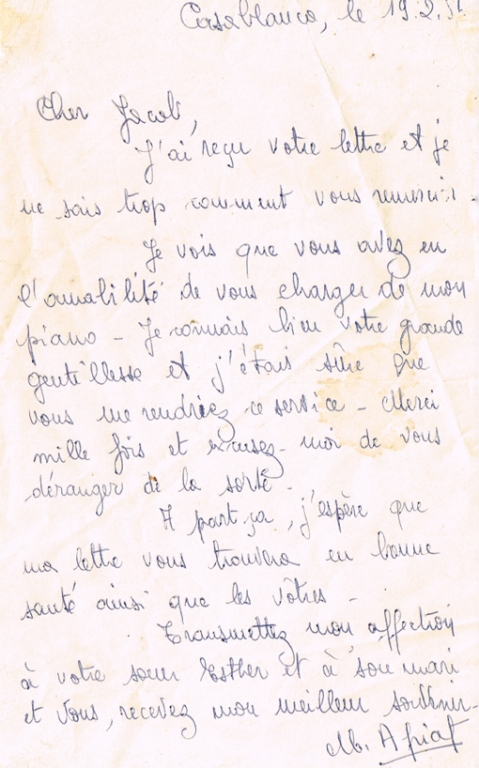 Casablanca, le 19.2.51
Cher Jacob,
J'ai reçu votre lettre et je
ne sais trop comment vous remercier.
Je vois que vous avez eu
l'amabilité de vous charger de mon
piano - Je connais bien votre grande
gentillesse et j'étais sûre que
vous me rendriez ce service - Merci
mille fois et excusez-moi de vous
déranger de la sorte -
A part ça, j'espère que
ma lettre vous trouvera en bonne
santé ainsi que les vôtres -
Transmettez mon affection
à votre soeur Esther et à son mari
et vous, recevez mon meilleur souvenir -
M. Afriat